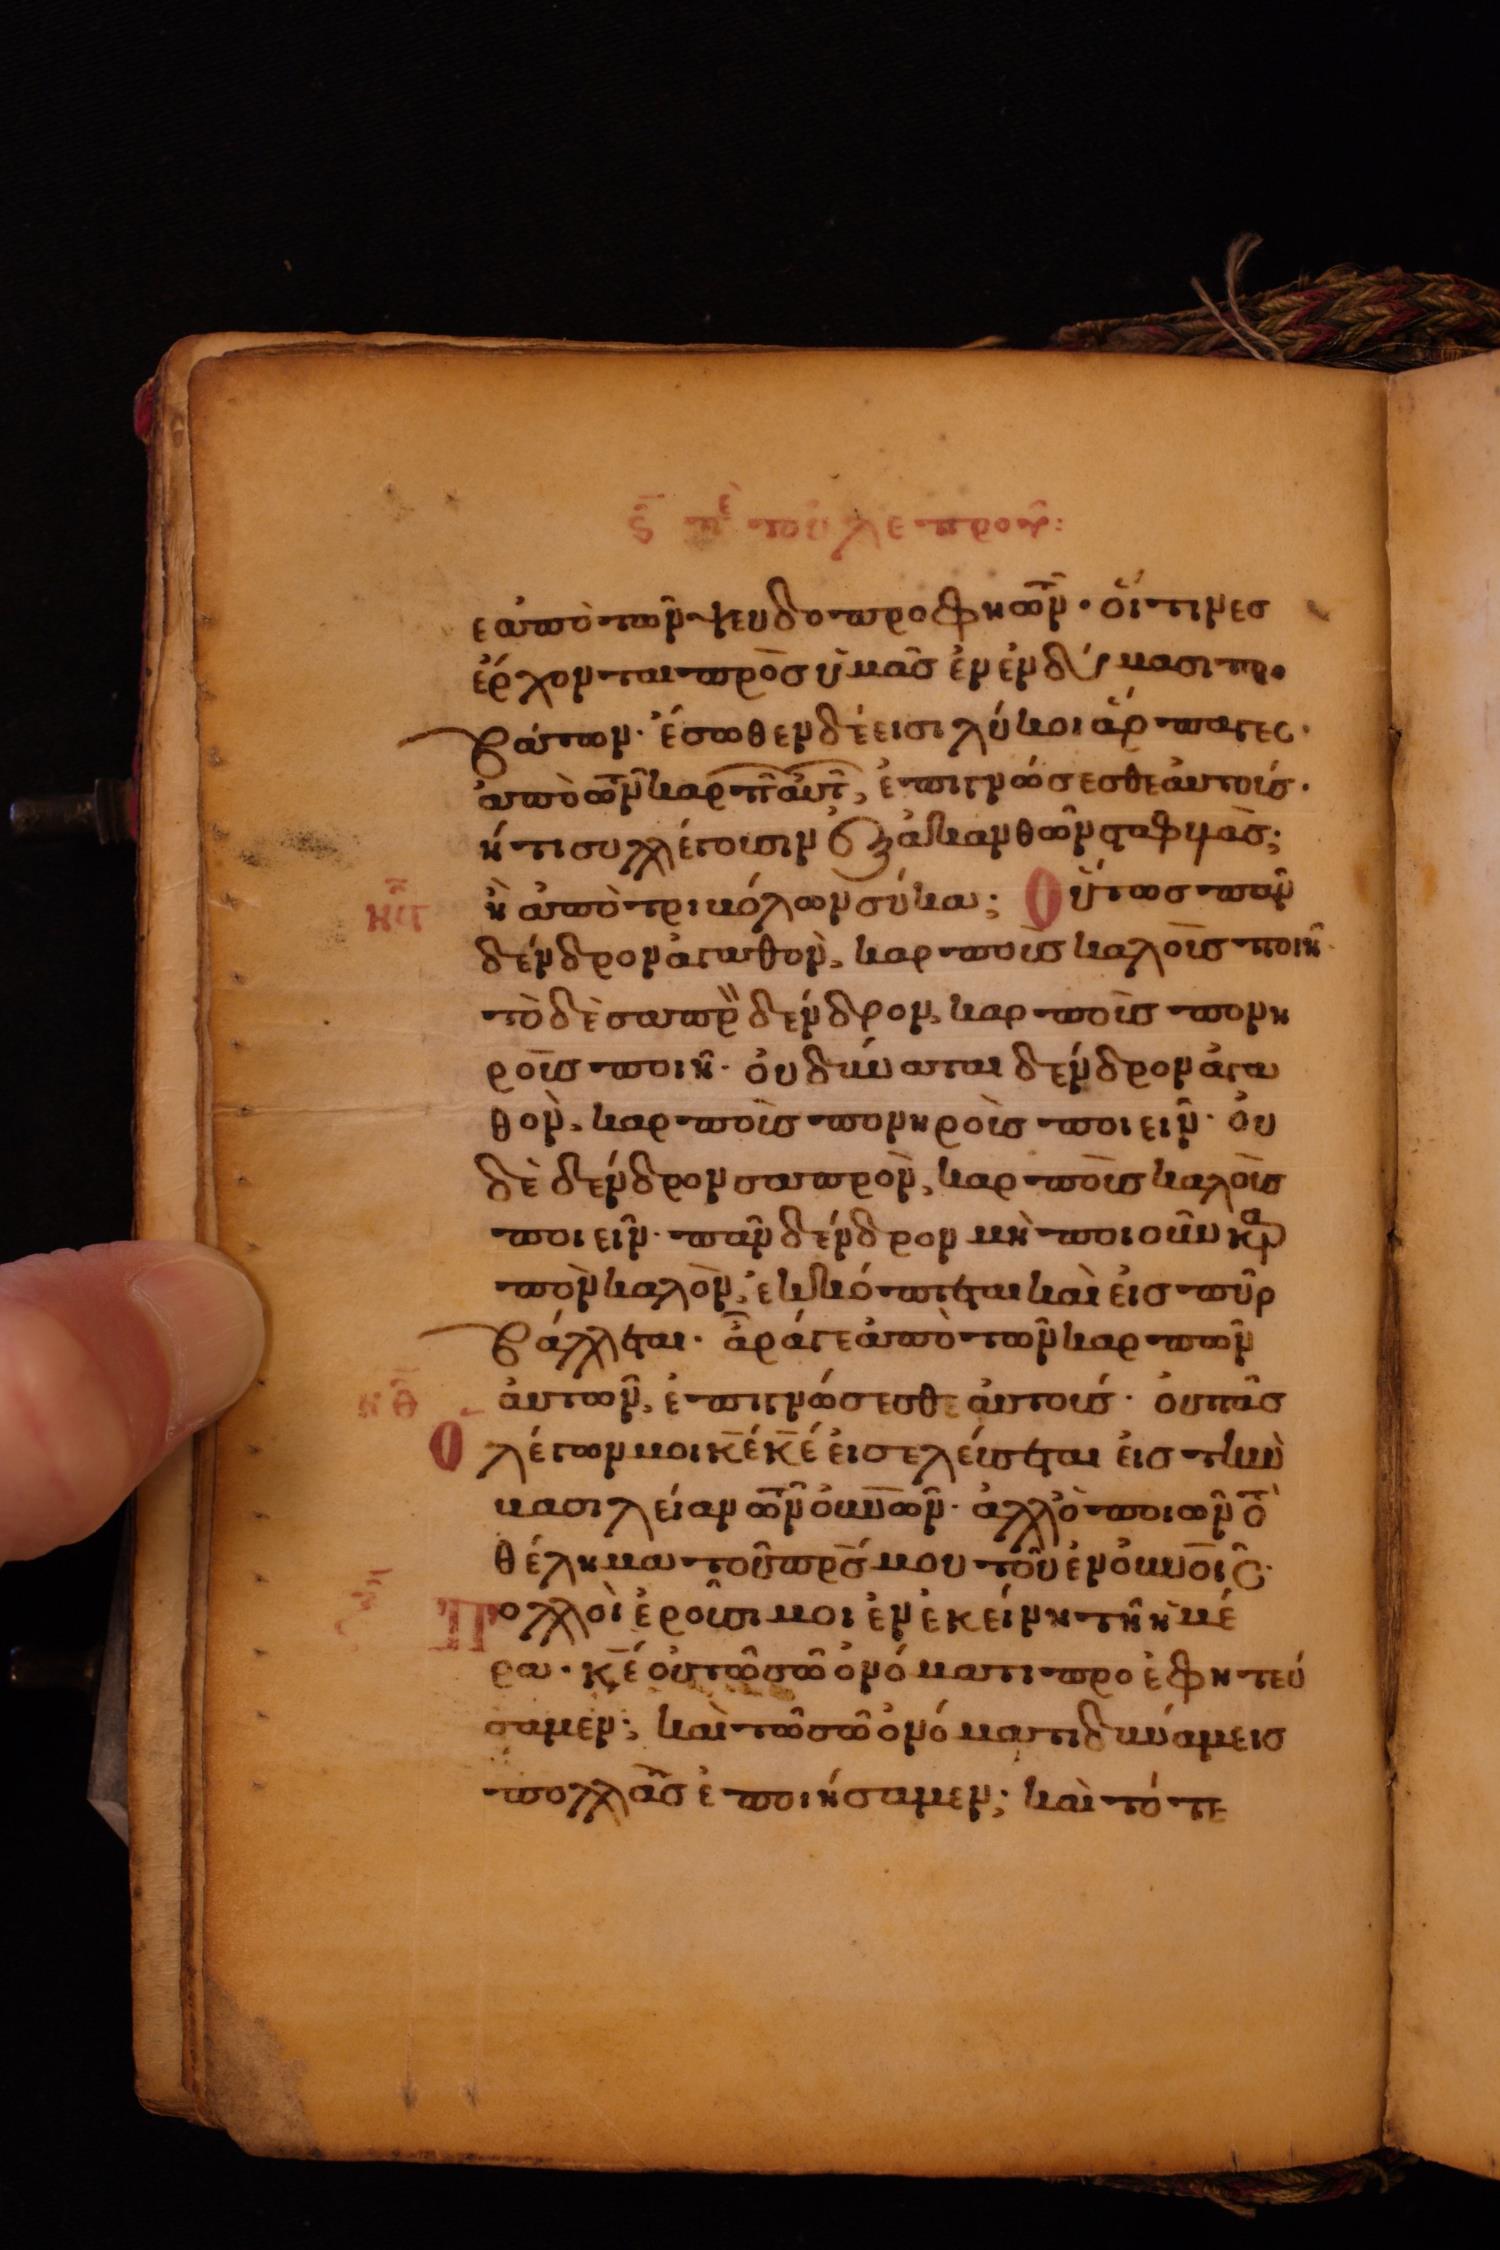 ϛ̄ πε τοῦ λεπροῦ:
ε ἀπὸ τῶν ψευδοπροφητῶν· οἵτινεσ
ἔρχονται πρὸσ ὑμᾶσ ἐν ἐνδύμασι προ
βάτων· ἔσωθεν δέ εισι λύκοι ἅρπαγεσ·
ἀπὸ τῶν καρπῶν ἀυτῶν, ἐπιγνώσεσθε ἀυτούσ·
μήτι συλλέγουσιν ἐξ ἀκανθῶν σταφυλὰσ;
ἢ ἀπὸ τριβόλων σύκα; Οὕτωσ πᾶν
δένδρον ἀγαθὸν, καρποὺσ καλοὺσ ποιεῖ·
τὸ δὲ σαπρὸν δένδρον, καρποὺσ πονη
ροὺσ ποιεῖ· ὀυ δύναται δένδρον ἀγα
θὸν, καρποὺσ πονηροὺσ ποιεῖν· ὀυ
δὲ δένδρον σαπρὸν, καρποὺσ καλοὺσ
ποιεῖν· πᾶν δένδρον μὴ ποιοῦν καρ
πὸν καλὸν, ἐκκόπτεται καὶ ἐισ πῦρ
βάλλεται· ἆράγε ἀπὸ τῶν καρπῶν
ἀυτῶν, ἐπιγνώσεσθε ἀυτούσ· ὀυ πᾶσ
Ὁ λέγων μοι κ̅έ κ̅έ ἐισελεύσεται ἐισ τὴν
βασιλείαν τῶν ὀυνῶν· ἀλλ' ὁ ποιῶν τὸ
θέλημα τοῦ πρσ μου τοῦ ἐν ὀυνοῖσ·
Πολλοὶ ἐροῦσι μοι ἐν ἐκείνη τῆ ἡμέ
ρα· κ̅έ ὀυ τῶ σῶ ὀνόματι προεφητεύ
σαμεν; καὶ τῶ σῶ ὀνόματι δυνάμεισ
πολλὰσ ἐποιήσαμεν; καὶ τότε